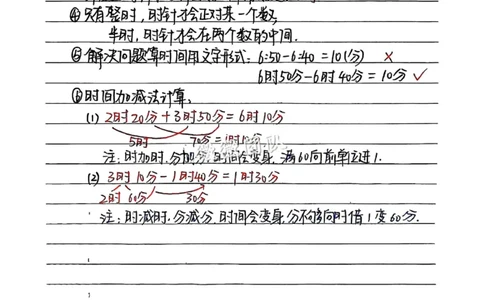 ④只有整时,时针才会正对某一个数,
半时,时针才会在两个数的中间.
⑤解决问题算时间用文字形式: 6:50-6:40=10(分) ×
6时50分-6时40分=10分 ✓
⑥时间加减法计算、
(1) 2时20分+3时50分=6时10分
5时 70分=1时10分
注:时加时,分加分,时间会变身,满60向前单位进1.
(2) 3时10分-1时40分=1时30分
2时 60分 30分
注:时减时,分减分,时间会变身,分不够向时借1变60分.